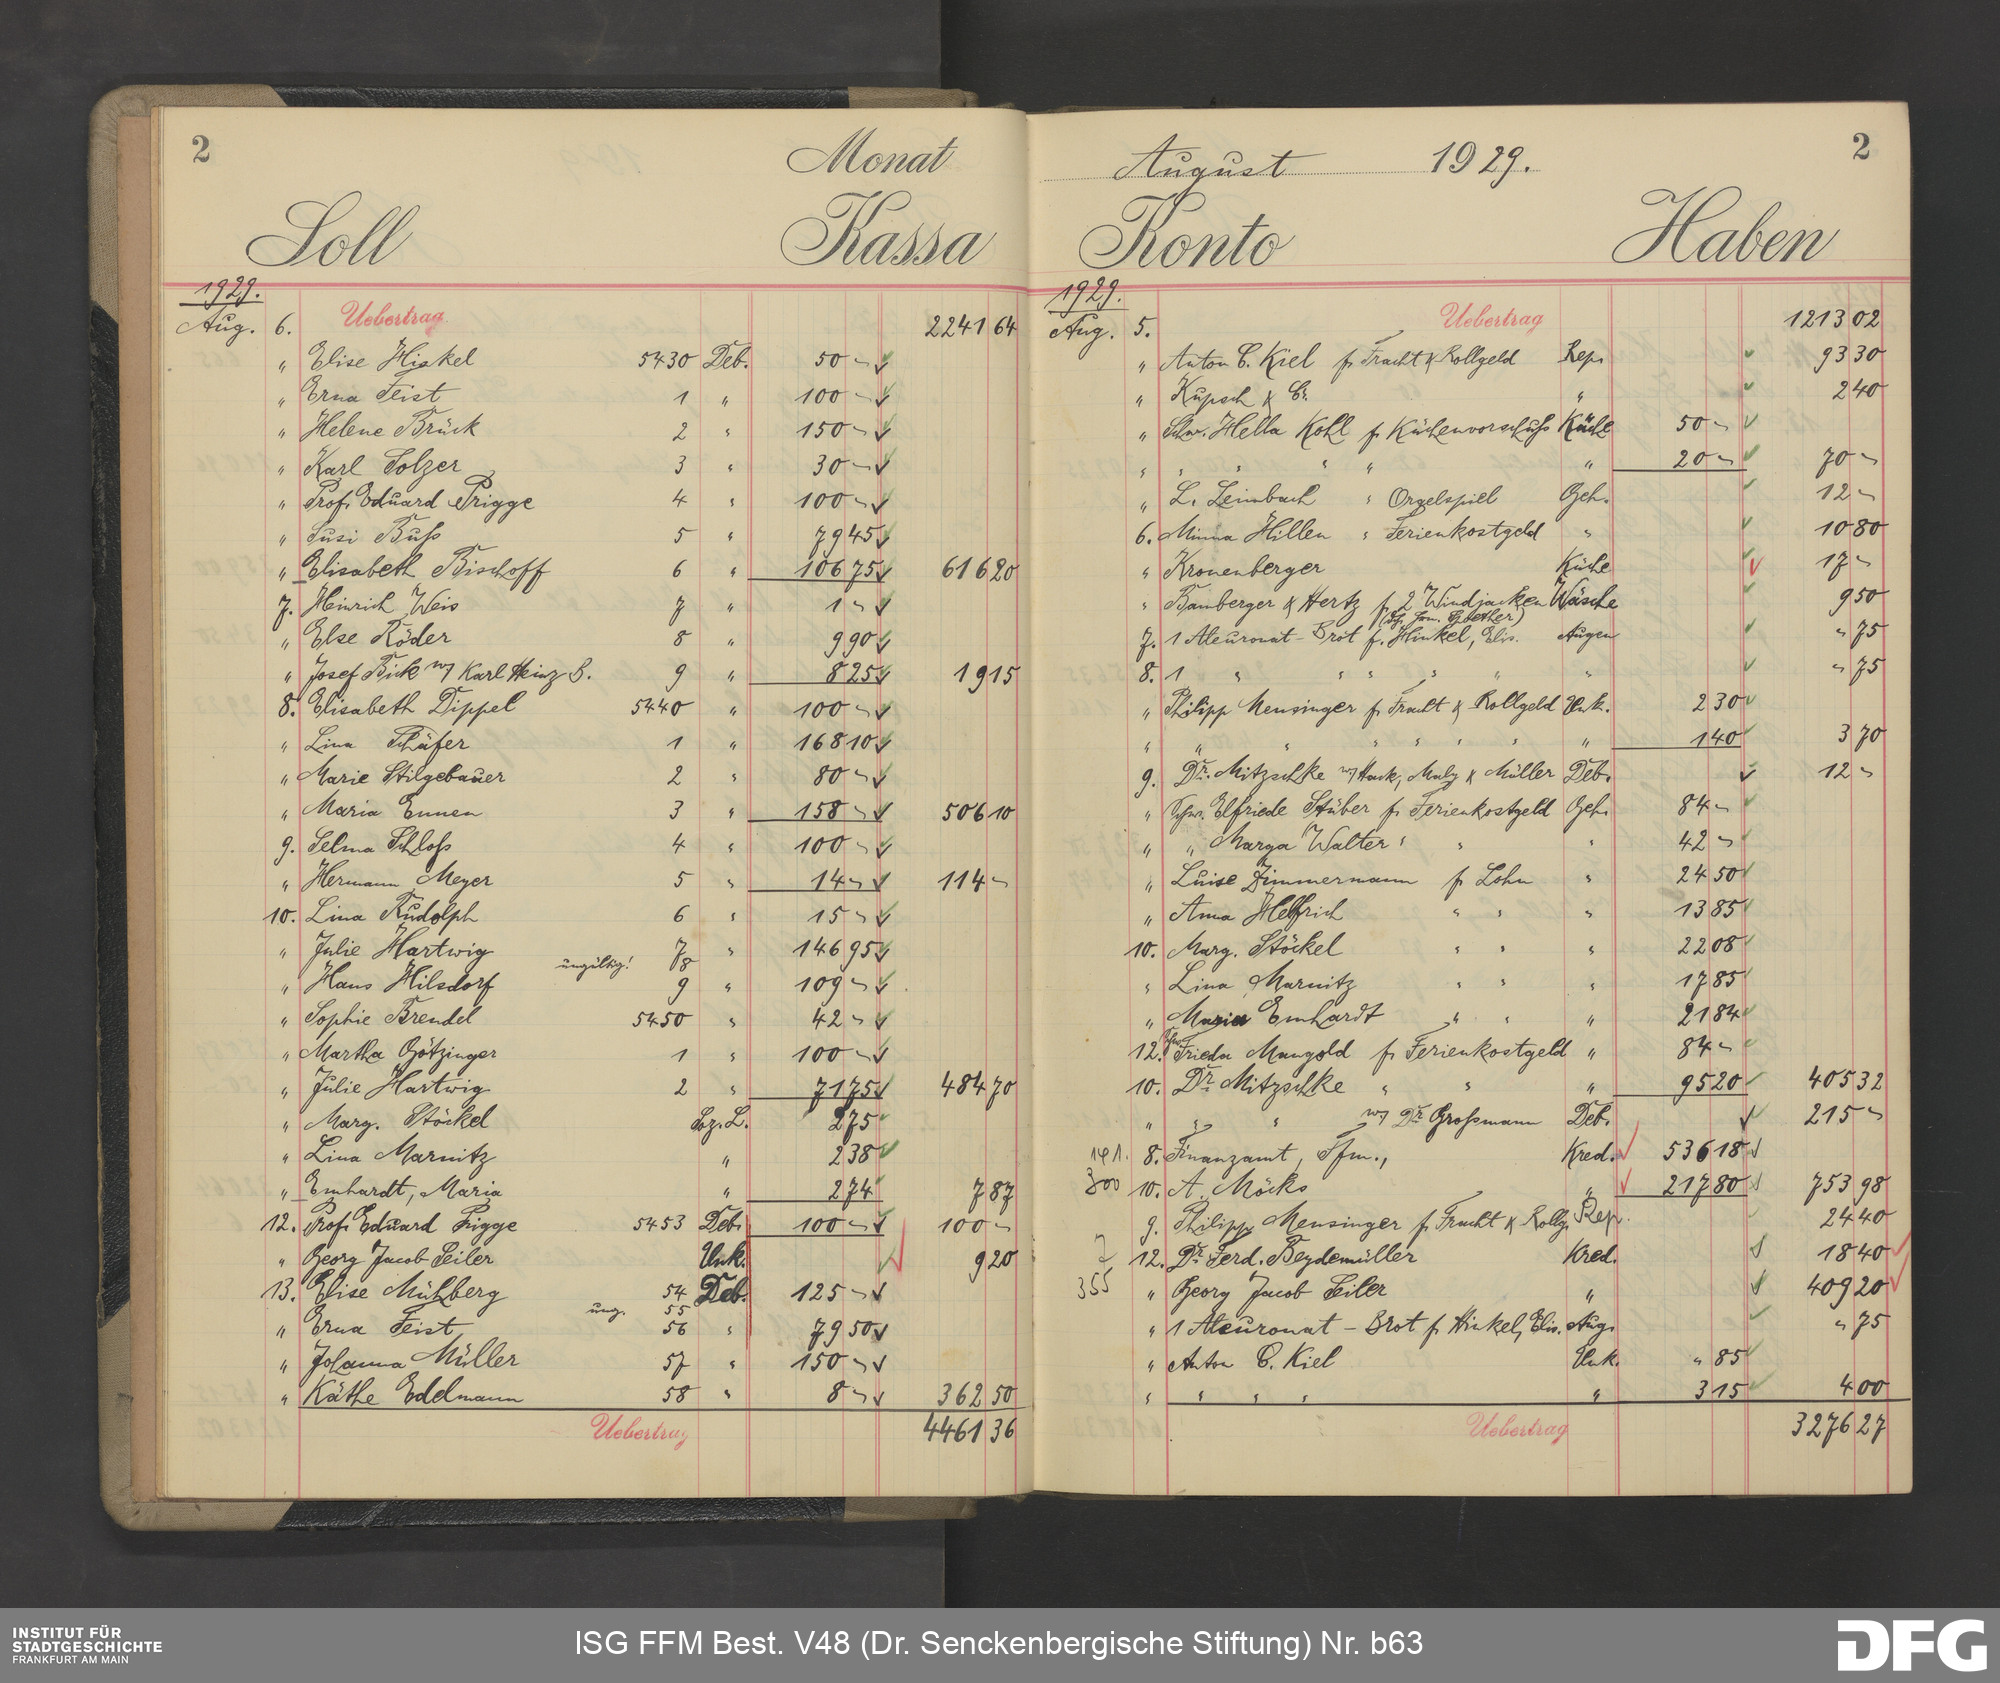 2
Monat
Soll Kassa
1929.
Aug. 6. Uebertrag 2241 64
" Elise Hinkel 5430 Deb. 50 –
" Erna Feist 1 " 100 –
" Helene Brück 2 " 150 –
" Karl Solzer 3 " 30 –
" Prof. Eduard Prigge 4 " 100 –
" Susi Buß 5 " 79 45
" Elisabeth Bischoff 6 " 106 75 616 20
7. Heinrich Weis 7 " 1 –
" Else Röder 8 " 9 90
" Josef Bick w/ Karl Heinz B. 9 " 8 25 19 15
8. Elisabeth Dippel 5440 " 100 –
" Lina Schäfer 1 " 168 10
" Marie Stilgebauer 2 " 80 –
" Maria Ennen 3 " 158 – 506 10
9. Selma Schloß 4 " 100 –
" Hermann Meyer 5 " 14 – 114 –
10. Lina Rudolph 6 " 15 –
" Julie Hartwig 7 " 146 95
ungültig! 8
" Hans Hilsdorf 9 " 109 –
" Sophie Brendel 5450 " 42 –
" Martha Götzinger 1 " 100 –
" Julie Hartwig 2 " 71 75 484 70
" Marg. Stöckel Soz. L. 2 75
" Lina Marnitz " 2 38
" Emhardt, Maria " 2 74 7 87
12. Prof. Eduard Prigge 5453 Deb. 100 – 100 –
" Georg Jacob Seiler Unk. 9 20
13. Elise Mühlberg 54 Deb. 125 –
ung. 55
" Erna Feist 56 " 79 50
" Johanna Müller 57 " 150 –
" Käthe Edelmann 58 " 8 – 362 50
Uebertrag 4461 36
August 1929. 2
Konto Haben
1929.
Aug. 5. Uebertrag 1213 02
" Anton C. Kiel f. Fracht & Rollgeld Rep. 93 30
" Kupsch & Co. " 2 40
" Schw. Hella Kohl f. Küchenvorschuß Küche 50 –
" " " " " " 20 – 70 –
" L. Leimbach " Orgelspiel Geh. 12 –
6. Minna Hillen " Ferienkostgeld " 10 80
" Kronenberger Küche 17 –
" Bamberger & Hertz f. 2 Windjacken Wäsche 9 50
7. 1 Aleuronat-Brot f. Hinkel, Elis. Augen " 75
8. 1 " " " " " " " 75
" Philipp Mensinger f. Fracht & Rollgeld Unk. 2 30
" " " " " " " " 1 40 3 70
9. Dr. Mitzschke w/ Hack, Maly & Müller Deb. 12 –
" Schw. Elfriede Stüber f. Ferienkostgeld Geh. 84 –
" " Marga Walter " " " 42 –
" Luise Zimmermann f. Lohn " 24 50
" Anna Helfrich " " " 13 85
10. Marg. Stöckel " " " 22 08
" Lina Marnitz " " " 17 85
" Maria Emhardt " " " 21 84
12. Schw. Frieda Mangold f. Ferienkostgeld " 84 –
10. Dr. Mitzschke " " " 95 20 405 32
" " " w/ Dr. Großmann Deb. 215 –
191. 8. Finanzamt, Ffm., Kred. 536 18
300 10. A. Möcks " 217 80 753 98
9. Philipp Mensinger f. Fracht & Rollg. Rep. 24 40
12. Dr. Ferd. Beydemüller Kred. 18 40
355 " Georg Jacob Seiler " 409 20
" 1 Aleuronat-Brot f. Hinkel, Elis. Aug. " 75
" Anton C. Kiel Unk. " 85
" " " " " " 3 15 4 00
Uebertrag 3276 27
INSTITUT FÜR
STADTGESCHICHTE
FRANKFURT AM MAIN
ISG FFM Best. V48 (Dr. Senckenbergische Stiftung) Nr. b63
DFG